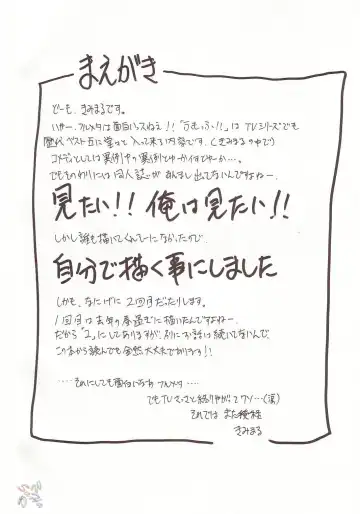 まえがき
どーも、きみまるです。
いやー、フルメタは面白いっスねぇ!!「ふもっふ!!」はTVシリーズでも
歴代ベスト五に堂々と入って来る内容です。(きみまるの中で)
コメディとしては異例中の異例とゆーかイキとゆーか…。
でもそのわりには同人誌があんまし出てないんですよねー。
見たい!! 俺は見たい!!
しかし誰も描いてくんそーになかったので
自分で描く事にしました
しかも、なにげに2回目だったりします。
1回目は去年の春過ぎに描いたんですよねー。
だから「2」にしてありますが、別にお話は続いてないんで
この本から読んでも全然大丈夫であります!!
‥‥それにしても面白いっすね フルメタ‥‥
でもTVさっさと終りやがって ワン…(涙)
それでは また後程
きみまる